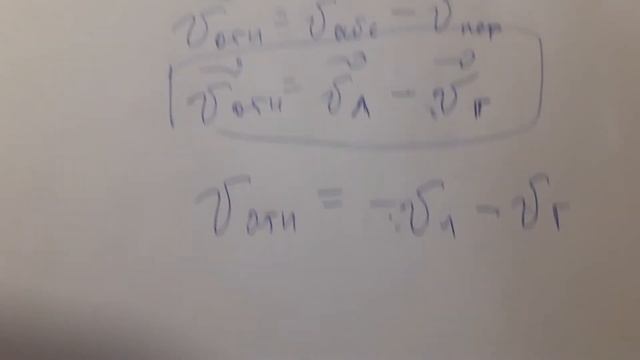 v отн = v абс − v пер
v⃗ отн = v⃗ л − v⃗ г
v отн = −v л − v г